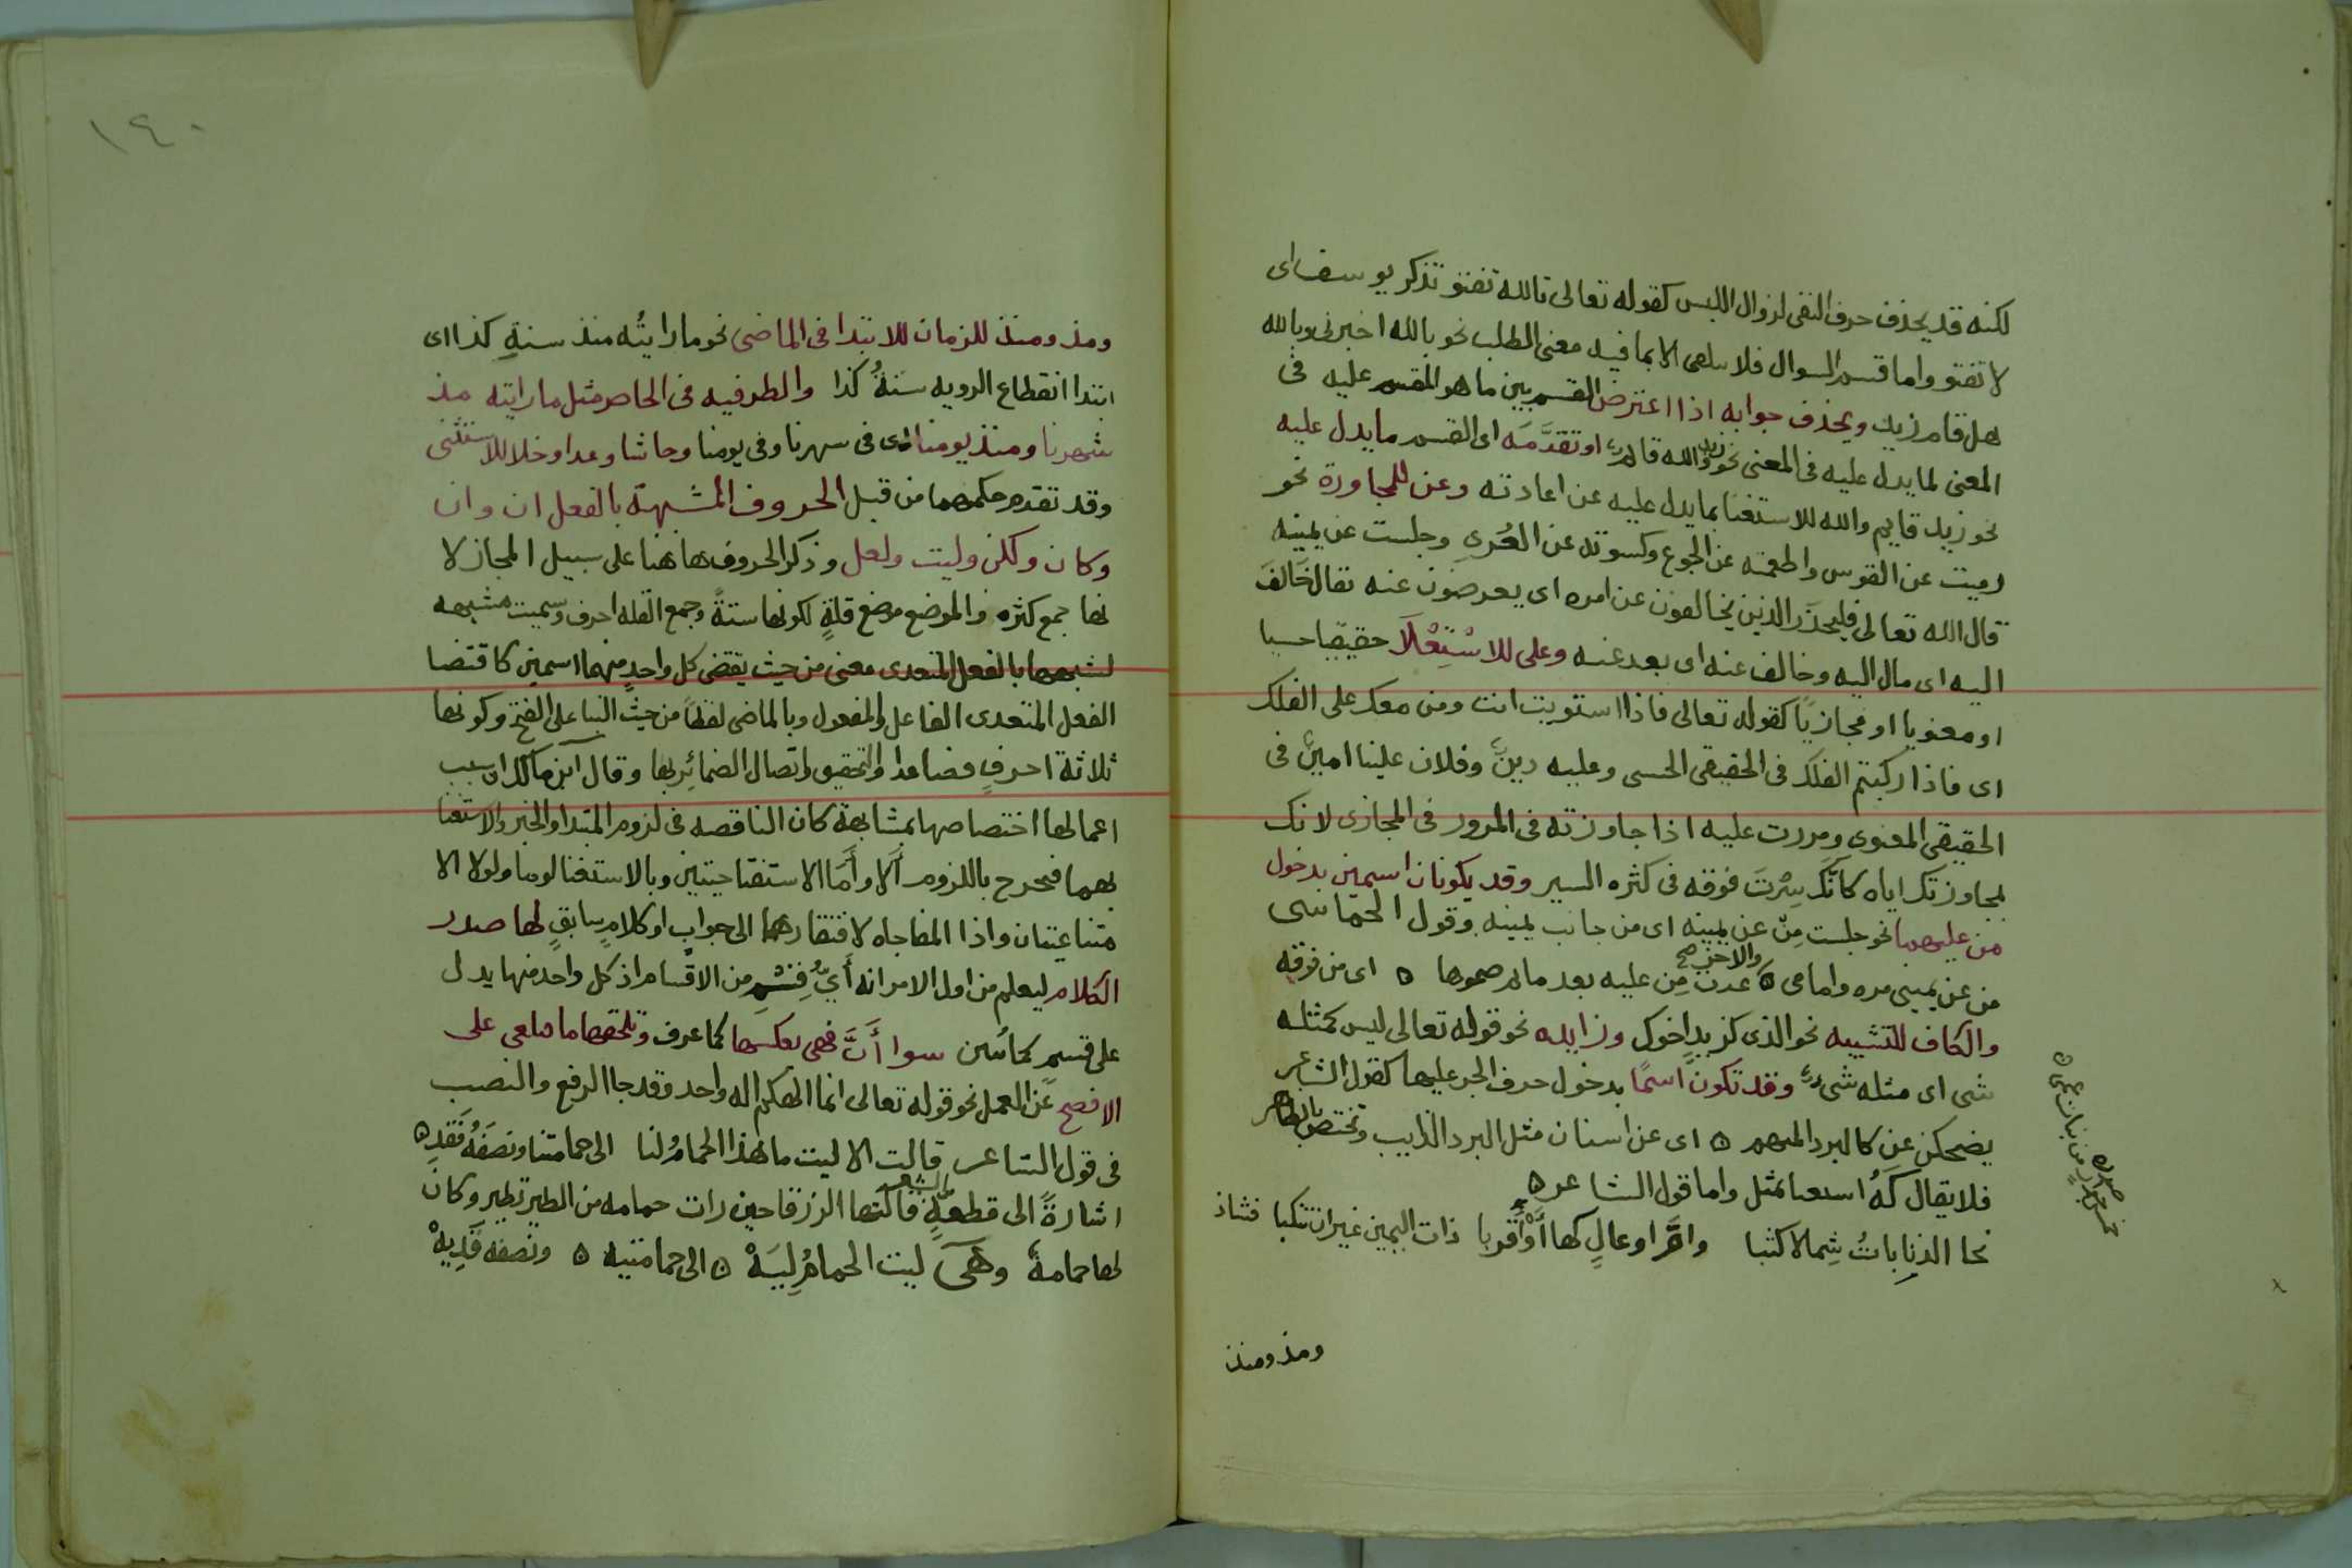 لكنه قد يحذف حرف النفى لزوال اللبس كقوله تعالى تالله تفتو تذكر يوسف اى
لا تفتو واما قسم السوال فلا يتلقى الا بما فيه معنى الطلب نحو بالله اخبرنى وبالله
هل قام زيد ويحذف جوابه اذا اعترض القسم بين ما هو المقسم عليه فى
المعنى لما يدل عليه فى المعنى نحو زيد والله قايم او تقدَّمَه اى القسم ما يدل عليه
نحو زيد قايم والله للاستغنا بما يدل عليه عن اعادته وعن للمجاورة نحو
رميت عن القوس واطعمته عن الجوع وكسوته عن العُرىِ وجلست عن يمينه
قال الله تعالى فليحذر الذين يخالفون عن امره اى يعرضون عنه يقال خَالَفَ
اليه اى مال اليه وخالف عنه اى بعد عنه وعلى للاسْتِعْلَا حقيقيا حسيا
او معنويا او مجازيًا كقوله تعالى فاذا استويت انت ومن معك على الفلك
اى فاذا ركبتم الفلك فى الحقيقى الحسى وعليه دينٌ وفلان علينا امينٌ فى
الحقيقى المعنوى ومررت عليه اذا جاوزته فى المرور فى المجازى لانك
لمجاوزتك اياه كانَّك سِرْتَ فوقه فى كثره السير وقد يكونان اسمين بدخول
من عليهما نحو جلست مِن عن يمينه اى من جانب يمينه وقول الحماسى
من عن يمينى مره وامامى ه والاخر صح غدت مِن عليه بعد ما تم ه اى من فوقه
والكاف للتشبيه نحو الذى كزيدٍ اخوك وزايده نحو قوله تعالى ليس كمثله
شى اى مثله شىء وقد تكون اسمًا بدخول حرف الجر عليها كقول الشاعر
يضحكن عن كالبرد المنهم ه اى عن اسنان مثل البرد الذايب وتختص بالظاهر
فلا يقال كَهُ استغنا بمثل واما قول الشاعر ه
نحا الذنابات شِمالا كثبا وامَّ اوعالٍ كها أَوْ أقربا ذات اليمين غير ان تنكبا فشاذ
ومذ ومنذ
صدره
١٤٠
ومذ ومنذ للزمان للابتدا فى الماضى نحو ما رايتُه منذ سنةِ كذا اى
ابتدا انقطاع الرويه سنةُ كذا والظرفيه فى الحاضر مثل ما رايته مذ
شهرنا ومنذ يومنا اى فى شهرنا وفى يومنا وحاشا وعدا وخلا للاستثنى
وقد تقدم حكمهما من قبل الحروف المشبهة بالفعل ان وان
وكان ولكن وليت ولعل وذكر الحروف هاهنا على سبيل المجاز لا
نها جمع كثره والموضع موضع قلةٍ لكونها ستةً وجمع القله احرف وسميت مشبهه
لشبهها بالفعل المتعدى معنى من حيث يقتضى كل واحدٍ منهما اسمين كاقتضا
الفعل المتعدى الفاعل والمفعول وبالماضى لفظًا من حيث البنا على الفتح وكونها
ثلاثة احرفٍ فصاعدا والتحقيق واتصال الضمائر بها وقال ابن مالك ان سبب
اعمالها اختصاصها بمشابهة كان الناقصه فى لزوم المبتدا والخبر والاستغنا
بهما فخرج باللزوم أَلَا وأَمَا الاستفتاحيتين وبالاستغنا لوما ولولا الا
متناعيتان واذا المفاجاه لافتقارهما الى جوابٍ او كلامٍ سابقٍ لها صدر
الكلام ليعلم من اول الامر انه أَىُّ قِسْمٍ من الاقسام اذ كل واحد منها يدل
على قسمٍ سوا أَنَّ فهى بعكسها كما عرف وتلحقها ما فتلغى على
الافصح عن العمل نحو قوله تعالى انما الهكم اله واحد وقد جا الرفع والنصب
فى قول الشاعر قالت الا ليت ما هذا الحمامُ لنا الى حمامتنا ونصفَهُ فَقَدِ ه
اشارةً الى قطعةٍ من الشعر قالتها الزرقا حين رات حمامه من الطير تطير وكان
لها حمامةٌ وهى ليت الحمامُ لِيَهْ ه الى حمامتيه ه ونصفه قَدِيهْ